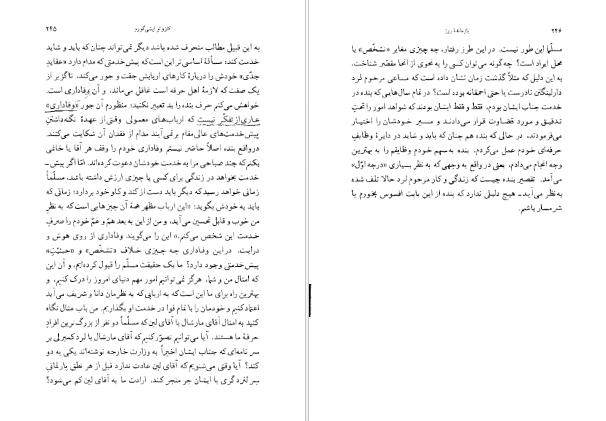 کازوئو ایشی‌گورو
۲۴۵
به این قبیل مطالب منحرف شده باشد دیگر نمی‌تواند چنان که باید و شاید
خدمت کند؛ مسألهٔ اساسی‌تر این است که پیش‌خدمتی که مدام در صدد «عقایدِ
جدّی» خودش را دربارهٔ کارهای اربابش جفت و جور می‌کند، ناگزیر از
یک صفت که لازمهٔ اهل حرفه است غافل می‌ماند، و آن وفاداری است.
خواهش می‌کنم حرف بنده را بد تعبیر نکنید؛ منظورم آن جور «وفاداری»
عاری از تفکّر نیست که اربابهای معمولی وقتی از عهدهٔ نگه‌داشتنِ
پیش‌خدمت‌های عالی‌مقام بر نمی‌آیند مدام از فقدان آن شکایت می‌کنند.
در واقع بنده اصلاً حاضر نیستم وفاداری خودم را وقف هر آقا یا خانمی
بکنم که چند صباحی مرا به خدمت خودشان دعوت کرده‌اند. امّا اگر پیش‌ـ
خدمت بخواهد در زندگی برای کسی یا چیزی ارزش داشته باشد، مسلماً
زمانی خواهد رسید که دیگر باید دست از کند و کاو خود بردارد؛ زمانی که
باید به خودش بگوید: «این ارباب مظهر همهٔ آن چیزهایی است که به نظرِ
من خوب و قابل تحسین می‌آید، و من از این به بعد همّ و غمّ خودم را صرفِ
خدمت این شخص می‌کنم.» این را می‌گویند وفاداری از روی هوش و
درایت. در این وفاداری چه چیزی خلاف «تشخّص» و «حیثیّت»
پیش‌خدمتی وجود دارد؟ ما یک حقیقت مسلّم را قبول کرده‌ایم، و آن این
که امثال من و شما، هرگز نمی‌توانیم امور مهم دنیای امروز را درک کنیم، و
بهترین راه برای ما این است که به اربابی که به نظرمان دانا و شریف می‌آید
اعتماد کنیم و خودمان را با تمام قوا در خدمت او بگذاریم. من باب مثال نگاه
کنید به امثال آقای مارشال یا آقای لین که مسلّماً دو نفر از بزرگ‌ترین افرادِ
حرفهٔ ما هستند. آیا می‌توانیم تصوّر کنیم که آقای مارشال با لرد کمبرلی بر
سر نامه‌ای که جناب ایشان اخیراً به وزارت خارجه نوشته‌اند یکی به دو
کند؟ آیا وقتی می‌شنویم که آقای لین عادت ندارد قبل از هر نطق پارلمانیِ
سر لئرد گری با ایشان جرّ منجر کند، ارادت ما به آقای لین کم می‌شود؟
۲۴۶
بازماندهٔ روز
مسلّماً این طور نیست. در این طرز رفتار، چه چیزی مغایر «تشخّص» یا
محل ایراد است؟ چه‌گونه می‌توان کسی را به نحوی از انحا مقصّر شناخت،
به این دلیل که مثلاً گذشت زمان نشان داده است که مساعی مرحوم لرد
دارلینگتن نادرست یا حتی احمقانه بوده است؟ در تمام سال‌هایی که بنده در
خدمت جناب ایشان بودم، فقط و فقط ایشان بودند که شواهد امور را تحتِ
تدقیق و مورد قضاوت قرار می‌دادند و مسیر خودشان را اختیار
می‌فرمودند، در حالی که بنده هم چنان که باید و شاید در دایرهٔ وظایفِ
حرفه‌ای خودم عمل می‌کردم. بنده به سهم خودم وظایفم را به بهترین
وجه انجام می‌دادم، یعنی در واقع به وجهی که به نظر بسیاری «درجه اوّل»
می‌آمد. تقصیر بنده چیست که زندگی و کار مرحوم لرد حالا تلف شده
به نظر می‌آید ـ هیچ دلیلی ندارد که بنده از این بابت افسوس بخورم یا
شرمسار باشم.